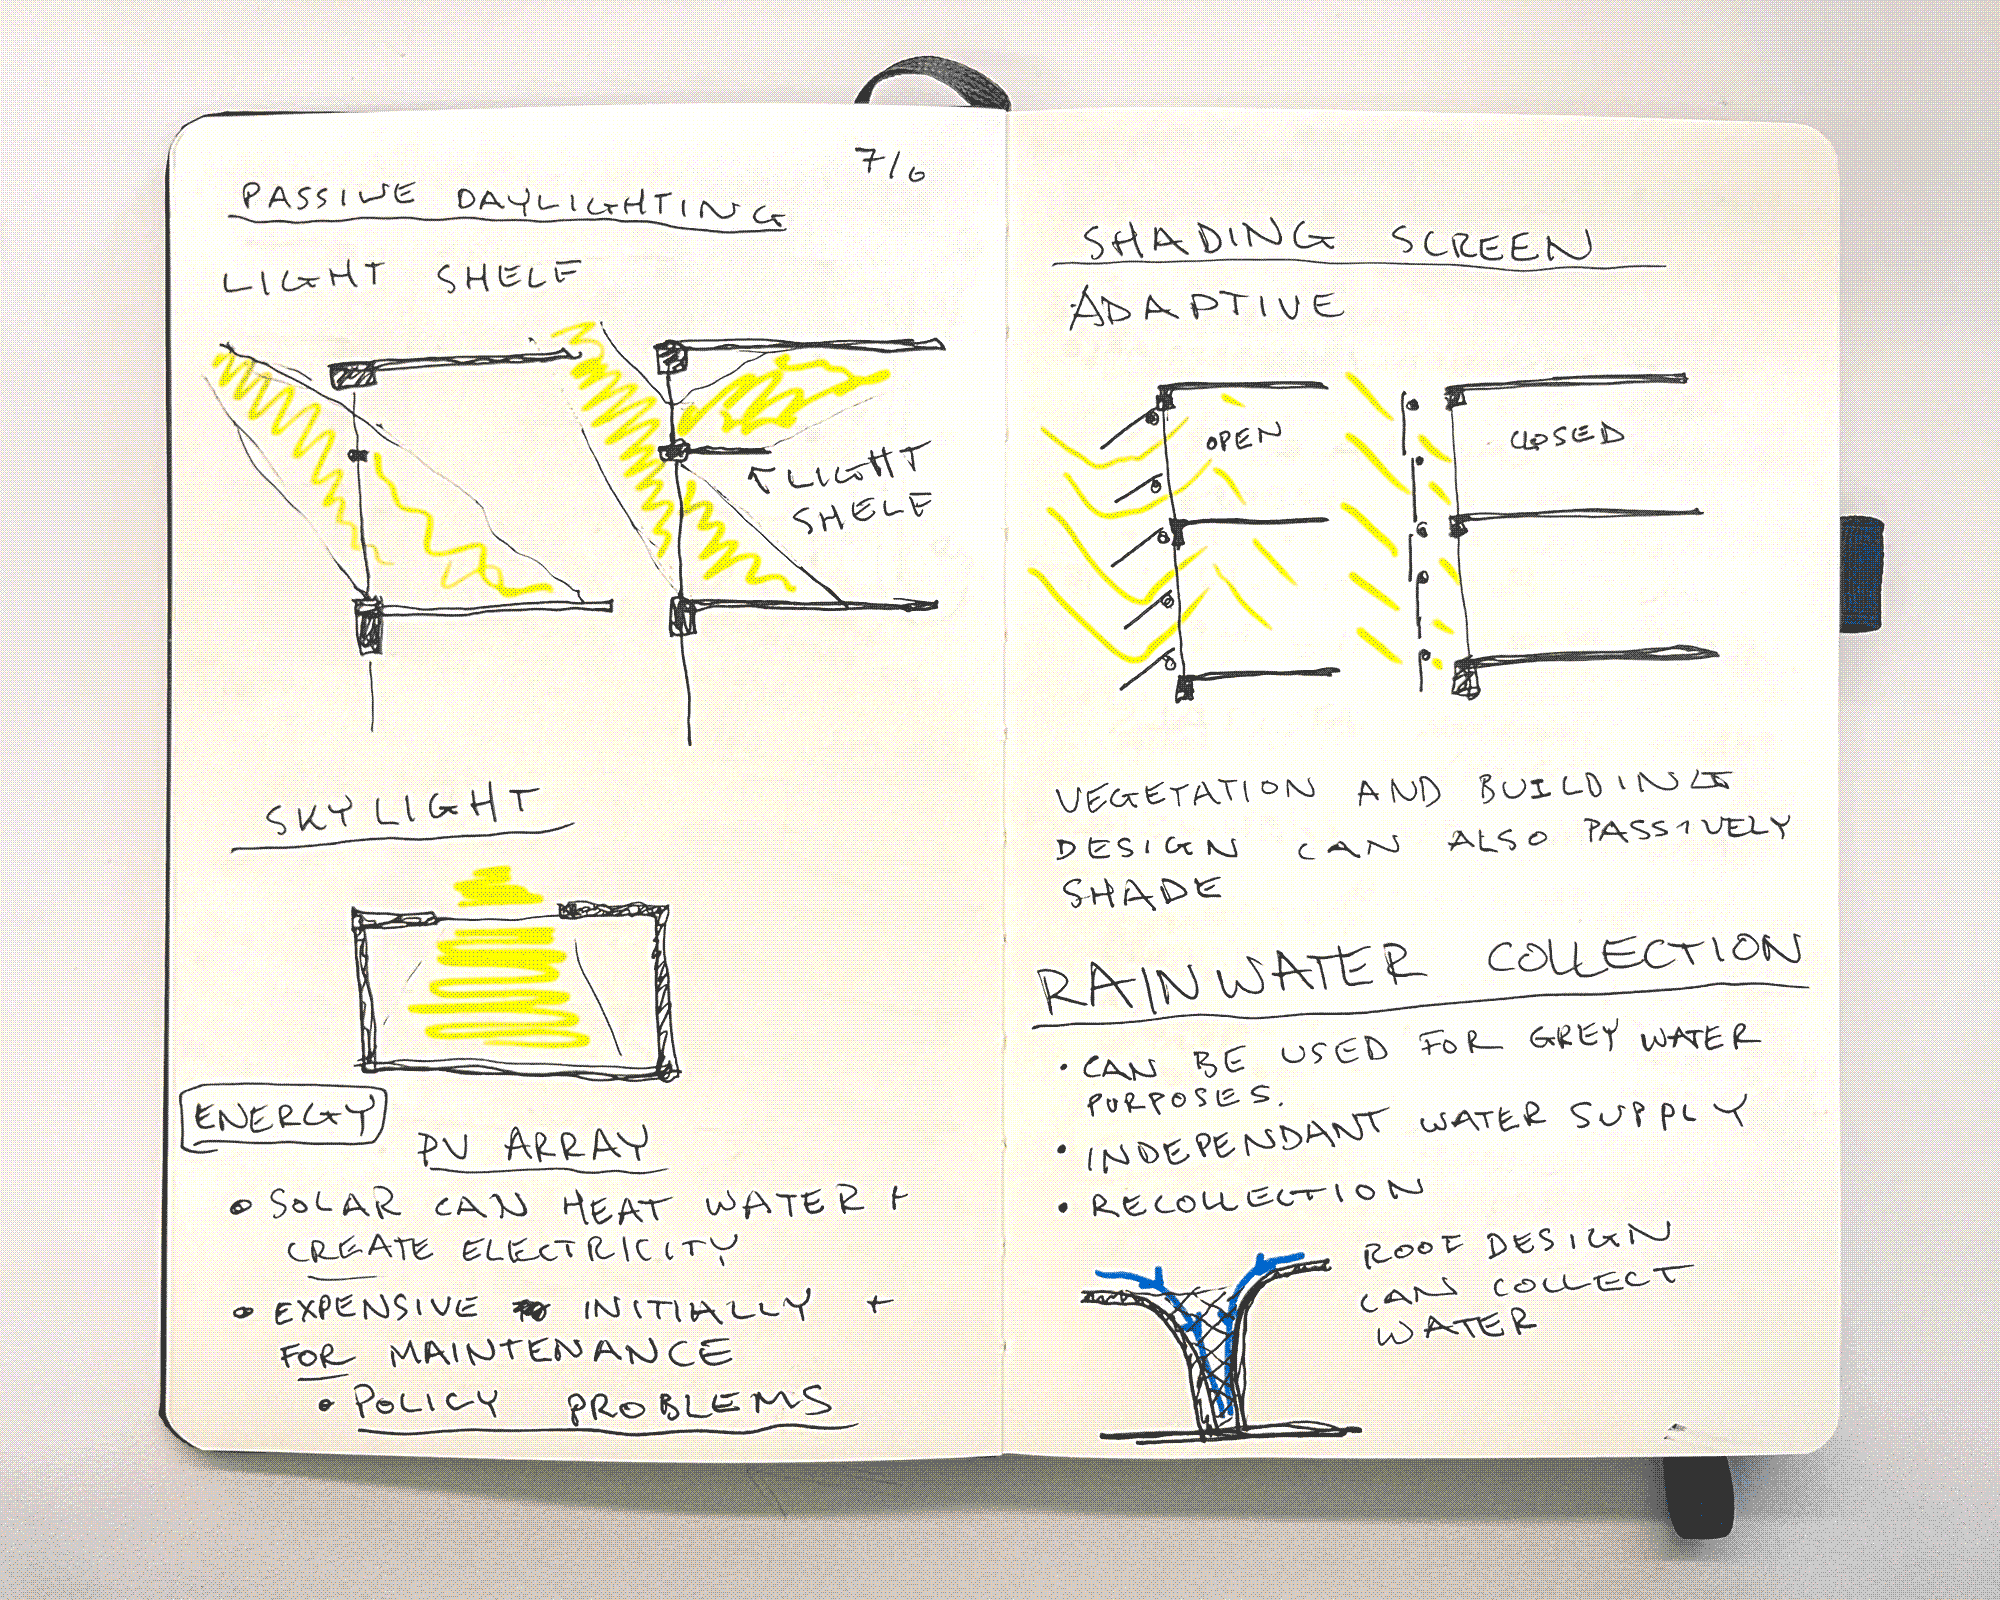 7/6
PASSIVE DAYLIGHTING
LIGHT SHELF
↑LIGHT
SHELF
SKYLIGHT
ENERGY
PV ARRAY
• SOLAR CAN HEAT WATER +
CREATE ELECTRICITY
• EXPENSIVE INITIALLY +
FOR MAINTENANCE
• POLICY PROBLEMS
SHADING SCREEN
ADAPTIVE
OPEN
CLOSED
VEGETATION AND BUILDING
DESIGN CAN ALSO PASSIVELY
SHADE
RAINWATER COLLECTION
• CAN BE USED FOR GREY WATER
PURPOSES.
• INDEPENDANT WATER SUPPLY
• RECOLLECTION
ROOF DESIGN
CAN COLLECT
WATER